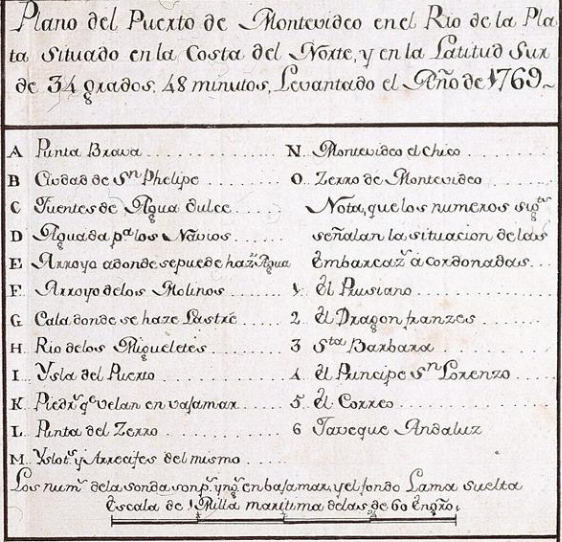 Plano del Puerto de Montevideo en el Rio de la Pla
ta situado en la Costa del Norte, y en la Latitud Sur
de 34 grados. 48 minutos, Levantado el Año de 1769
A Punta Brava
B Ciudad de Sn Phelipe
C Fuentes de Agua dulce
D Aguada pa los Navios
E Arroyo adonde sepuede hazr Agua
F Arroyo delos Molinos
G Cala donde se haze Lastre
H Rio delos Migueletes
I Ysla del Puerto
K Piedrs qe velan en vajamar
L Punta del Zerro
M Yslots y Arrecifes del mismo
N Montevideo el chico
O Zerro de Montevideo
Nota, que los numeros sigtes
señalan la situacion de las
Embarcazs à cordonadas
1 El Prusiano
2 El Dragon franzes
3 Sta Barbara
4 El Principe Sn Lorenzo
5 El Correo
6 Javeque Andaluz
Los nums dela sonda son ps yngs en bajamar, y el fondo Lama suelta
Escala de 1 Milla maritima delas de 60 en gro.